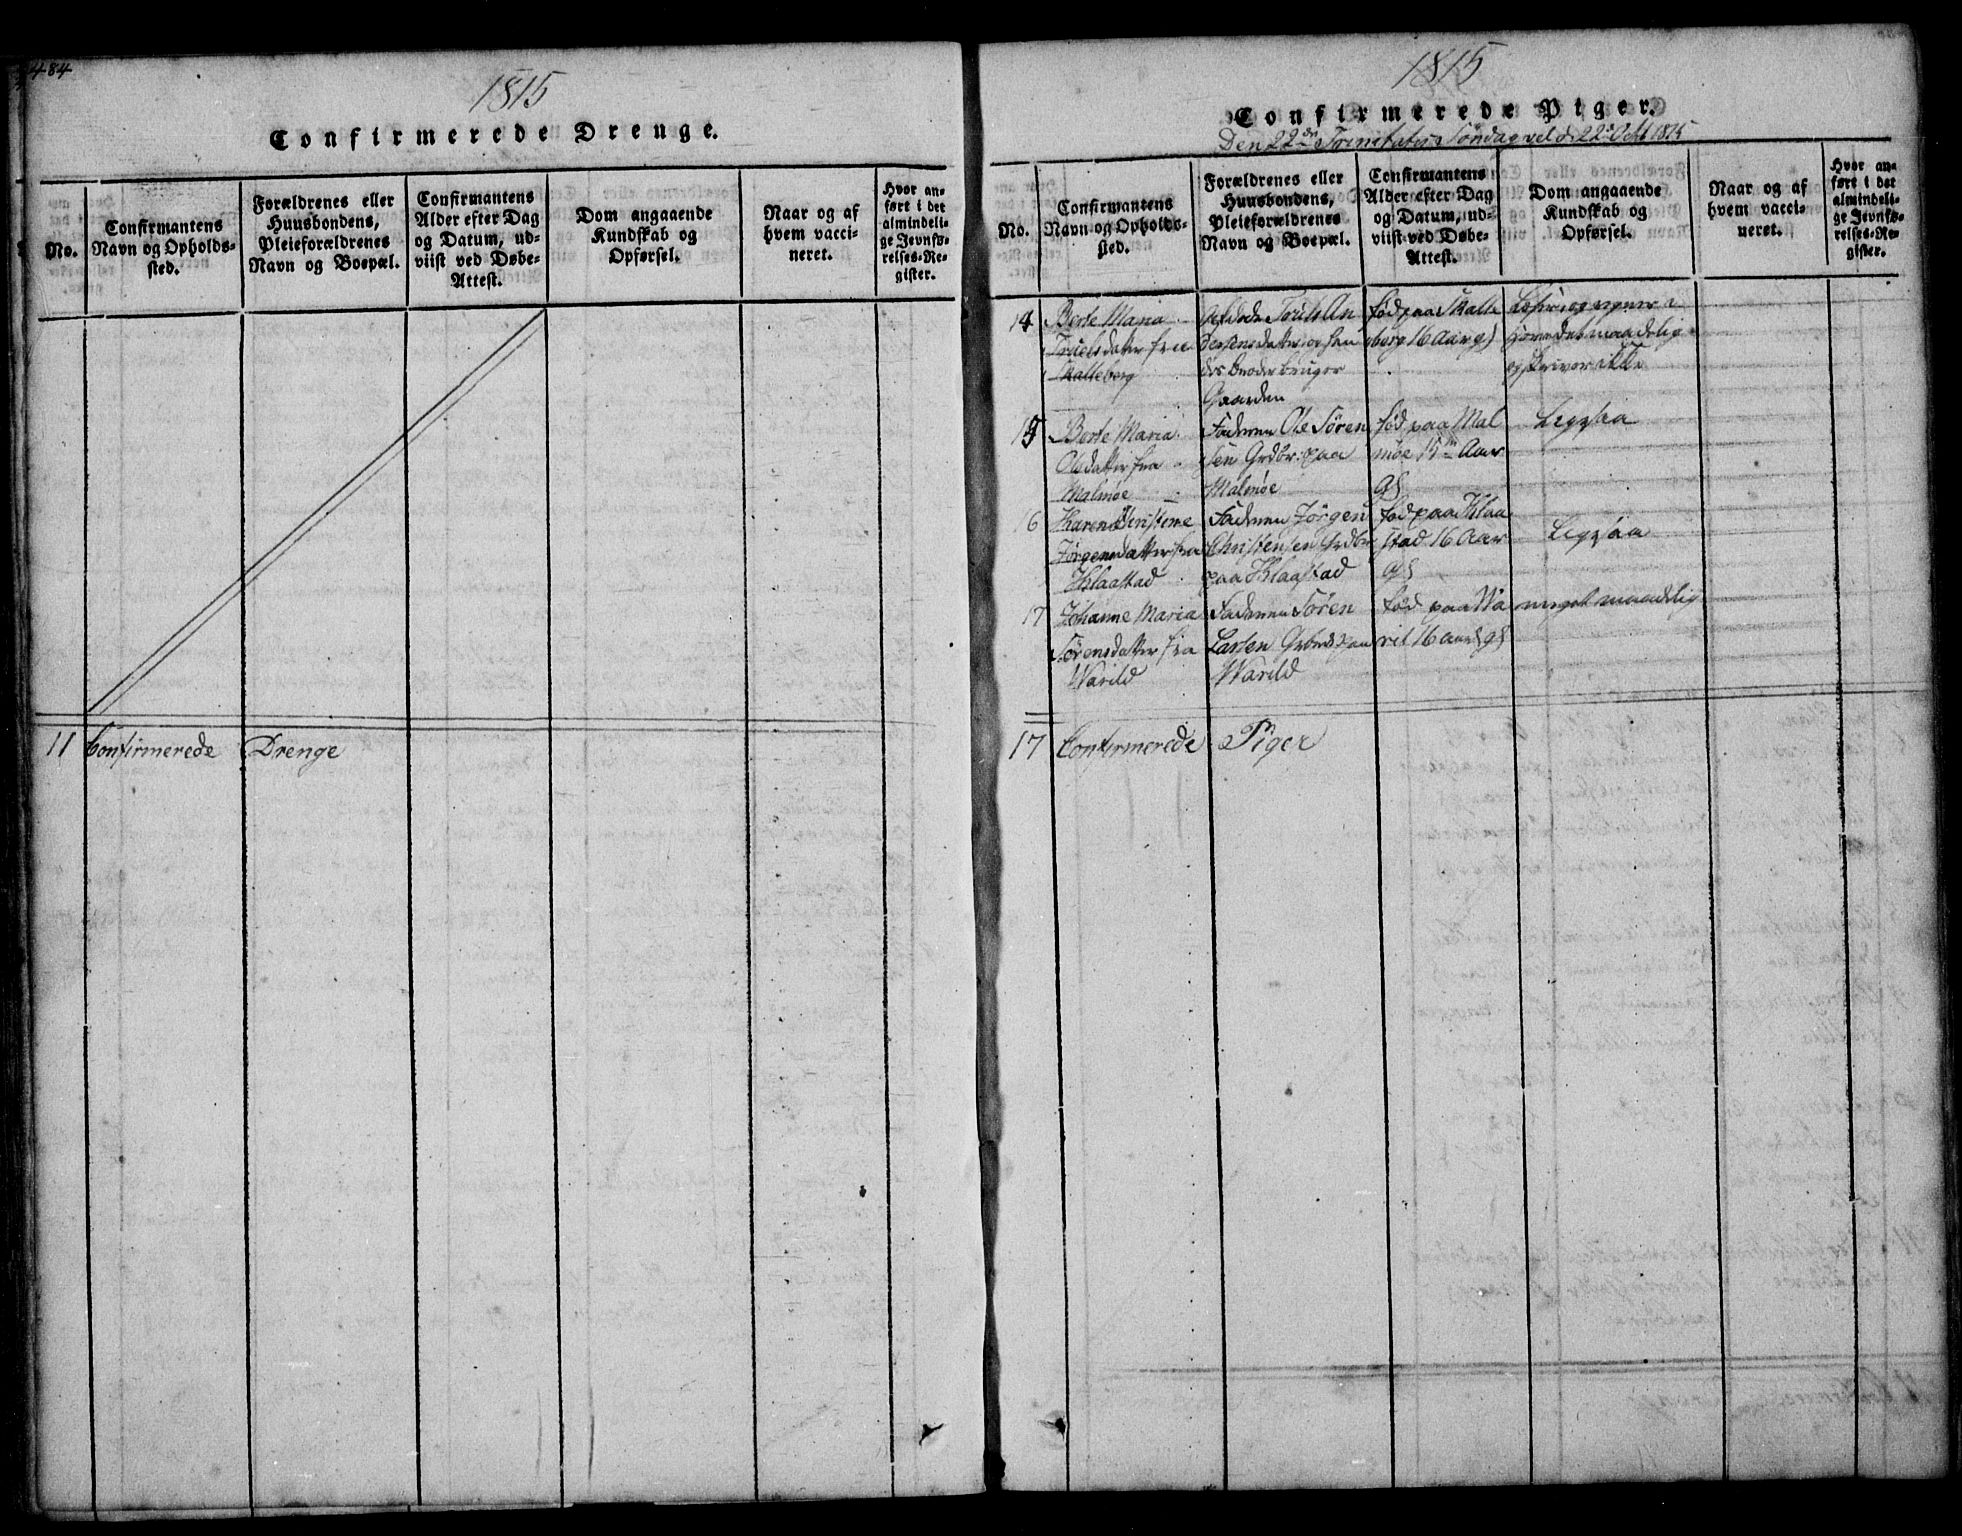 484
1815
Confirmerede Drenge.
No.
Confirmantens
Navn og Opholds-
sted.
Forældrenes eller
Huusbondens,
Pleieforældrenes
Navn og Boepæl.
Confirmantens
Alder efter Dag
og Datum, ud-
viist ved Døbe-
Attest.
Dom angaaende
Kundskab og
Opførsel.
Naar og af
hvem vacci-
neret.
Hvor an-
ført i det
almindeli-
ge Jevnfø-
relses-Re-
gister.
11 Confirmerede Drenge
1815
Confirmerede Piger.
Den 22de Trinitatis Søndag vel d. 22de Octb 1815
No.
Confirmantens
Navn og Opholds-
sted.
Forældrenes eller
Huusbondens,
Pleieforældrenes
Navn og Boepæl.
Confirmantens
Alder efter Dag
og Datum, ud-
viist ved Døbe-
Attest.
Dom angaaende
Kundskab og
Opførsel.
Naar og af
hvem vacci-
neret.
Hvor an-
ført i det
almindeli-
ge Jevnfø-
relses-Re-
gister.
14
Berte Maria
Truelsdatter fra
Skalleberg
Afdøde Truls An
dersens datter og hen
des broder bruger
Gaarden
fød paa Skalle
berg 16 Aar gl
Læser og
maadelig
og skriver ikke
15
Berte Maria
Olsdatter fra
Malmøe
Faderen Ole Søren
sen Grdbr: paa
Malmøe
fød paa Mal
møe 15 Aar
gl
Ligesaa
16
Karen Christine
Jørgensdatter fra
Klaastad
Faderen Jørgen
Christensen Grdbr
paa Klaastad
fød paa Klaa
stad 16 Aar
gl
Ligesaa
17
Johanne Maria
Sørensdatter fra
Warild
Faderen Søren
Larsen paa
Warild
fød paa Wa
rild 16 Aar gl
meget maadelig
17 Confirmerede Piger